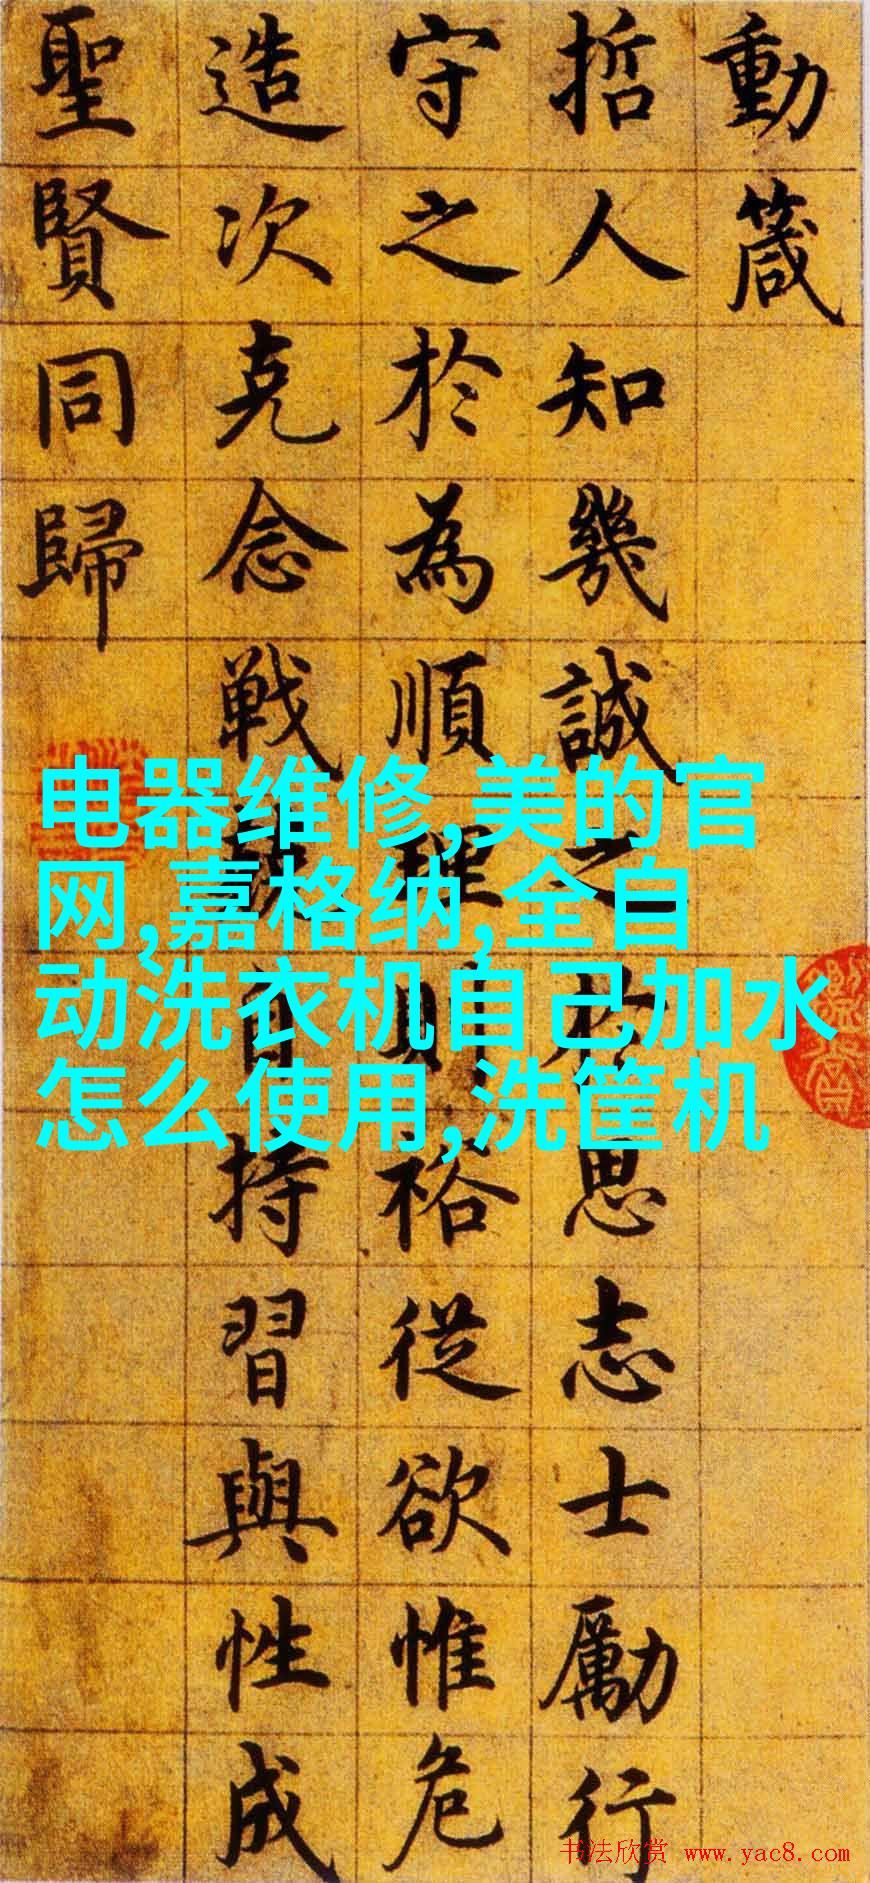 動箴
哲人知幾誠之於思志士勵行
守之於為順理則裕從欲惟危
造次克念戰兢自持習與性成
聖賢同歸
电器维修,美的官
网,嘉格纳,全自
动洗衣机自己加水
怎么使用,洗筐机
书法欣赏 www.yac8.com